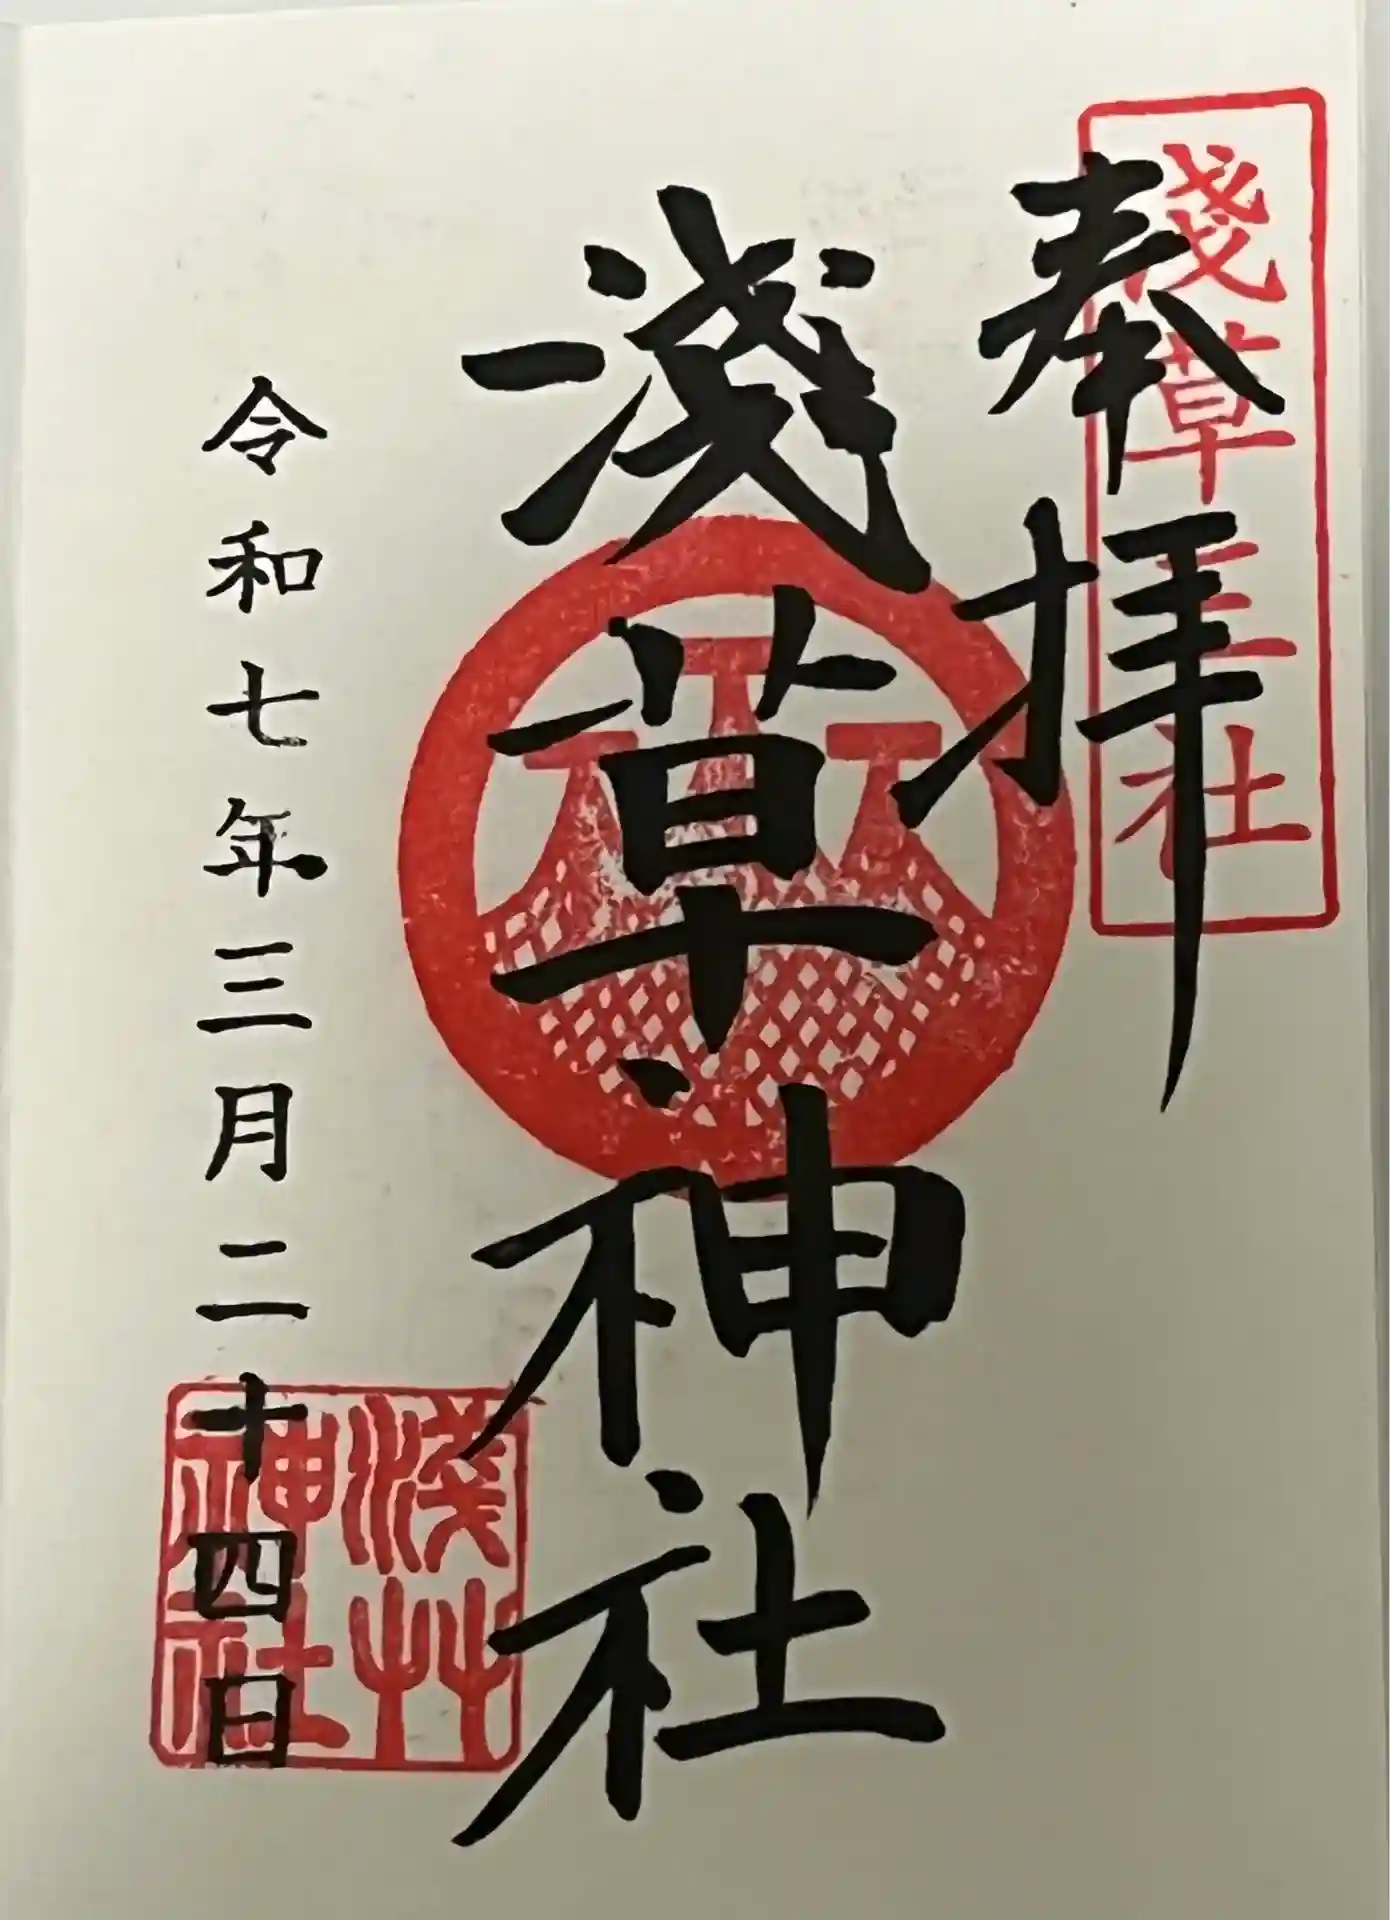 淺草三社
奉拝
淺草神社
令和七年三月二十四日
淺艸
神社